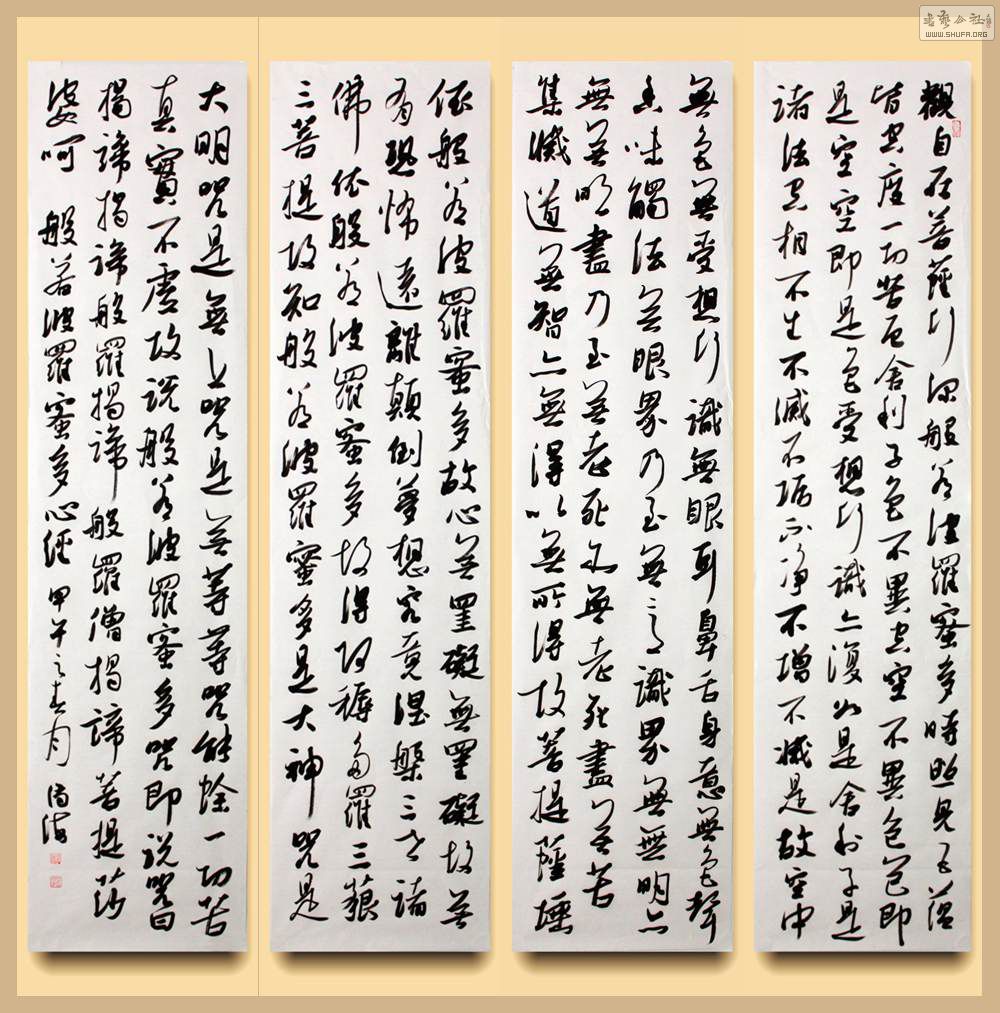 觀自在菩薩行深般若波羅蜜多時照見五蘊
皆空度一切苦厄舍利子色不異空空不異色色即
是空空即是色受想行識亦復如是舍利子是
諸法空相不生不滅不垢不淨不增不減是故空中
無色無受想行識無眼耳鼻舌身意無色聲
香味觸法無眼界乃至無意識界無無明亦
無無明盡乃至無老死亦無老死盡無苦
集滅道無智亦無得以無所得故菩提薩埵
依般若波羅蜜多故心無罣礙無罣礙故無
有恐怖遠離顛倒夢想究竟涅槃三世諸
佛依般若波羅蜜多故得阿耨多羅三藐
三菩提故知般若波羅蜜多是大神咒是
大明咒是無上咒是無等等咒能除一切苦
真實不虛故說般若波羅蜜多咒即說咒曰
揭諦揭諦般羅揭諦般羅僧揭諦菩提莎
婆呵 般若波羅蜜多心經 甲午之春月
書藝公社
WWW.SHUFA.ORG